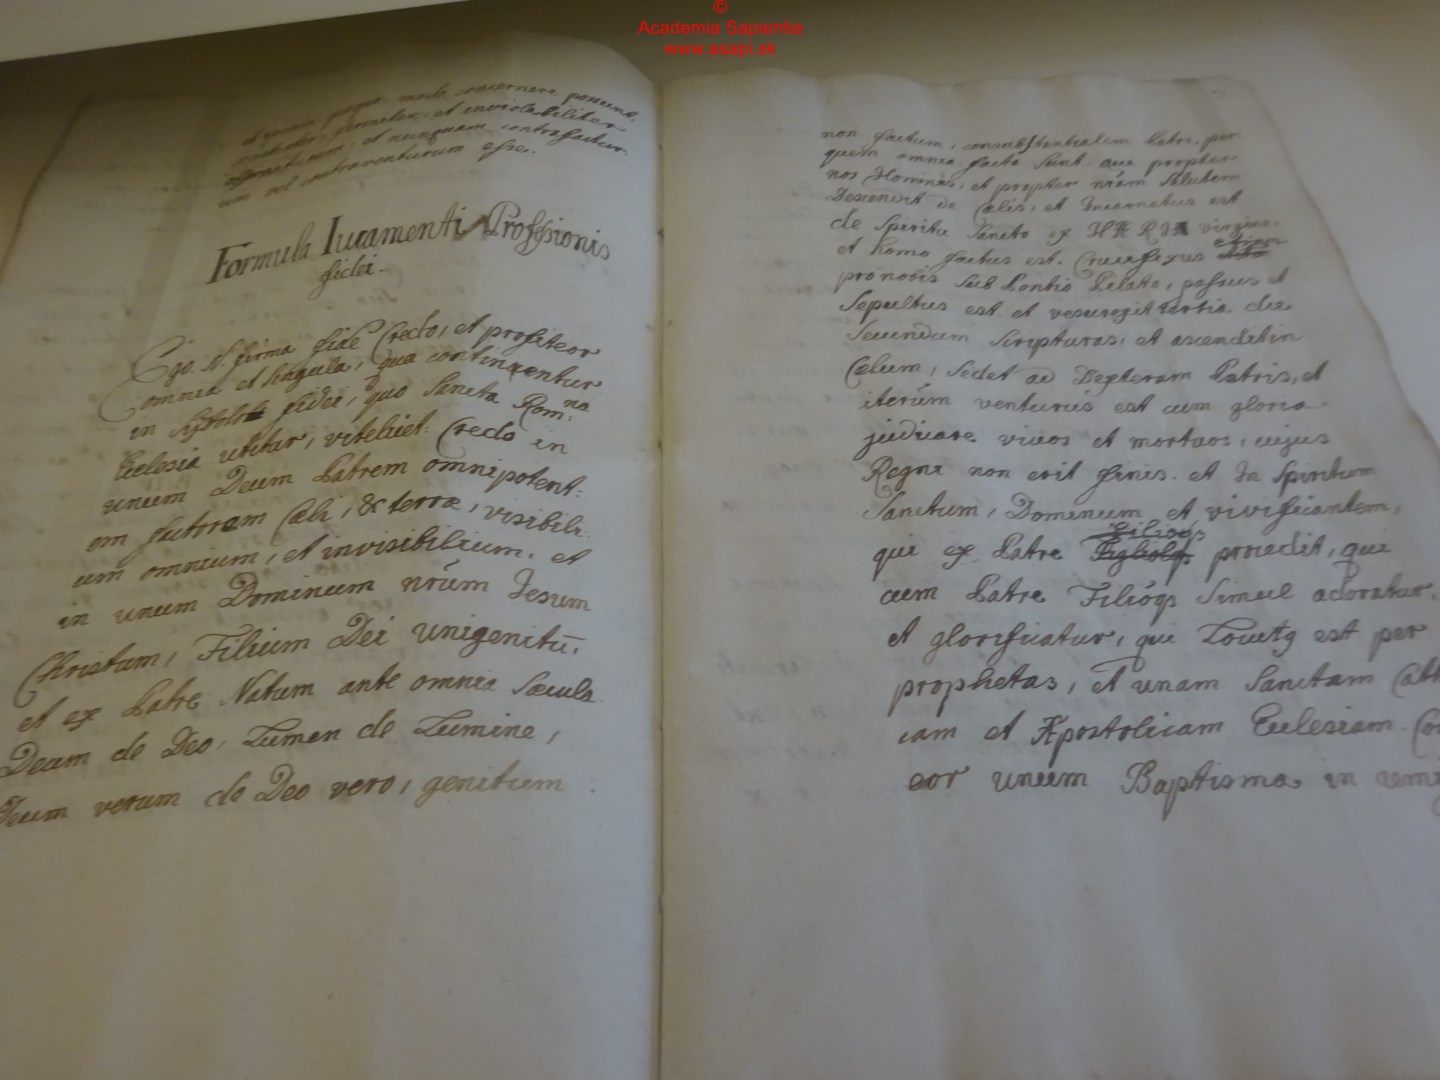 ©
Academia Sapientia
www.asapi.sk
modo concernere possunt,
et inviolabiliter
et nunquam contrafactur
um vel contraventurum esse.
Formula Iuramenti Professionis
fidei.
Ego N. firma fide Credo, et profiteor
omnia et singula, quæ continentur
in fidei, quo Sancta Rom:na
Ecclesia utitur, videlicet: Credo in
unum Deum Patrem omnipotent:
em factoram Cæli, & terræ, visibili
um omnium, et invisibilium. et
in unum Dominum nr̃um Jesum
Christum, Filium Dei unigenitū,
et ex Patre Natum ante omnia Sæcula.
Deum de Deo, Lumen de Lumine,
Deum verum de Deo vero, genitum
non factum, consubstantialem Patri, per
quem omnia facta sunt. qui propter
nos Homines, et propter nr̃am Salutem
Descendit de Cælis, et Incarnatus est
de Spiritu Sancto ex MARIA virgine,
et homo factus est. Crucifixus etiam
pro nobis sub Pontio Pilato, passus et
Sepultus est. et resuregit tertia die
Secundum Scripturas, et ascendit in
Cælum, sedet ad Dexteram Patris, et
iterum venturus est cum gloria
judicare vivos et mortuos, cujus
Regni non erit finis. et In Spiritum
Sanctum, Dominum et vivificantem,
qui ex Patre Filioq procedit, qui
cum Patre Filióq Simul adoratur,
et glorificatur, qui est per
prophetas, et unam Sanctam Catt
icam et Apostolicam Ecclesiam. Con
eor unum Baptisma in remi